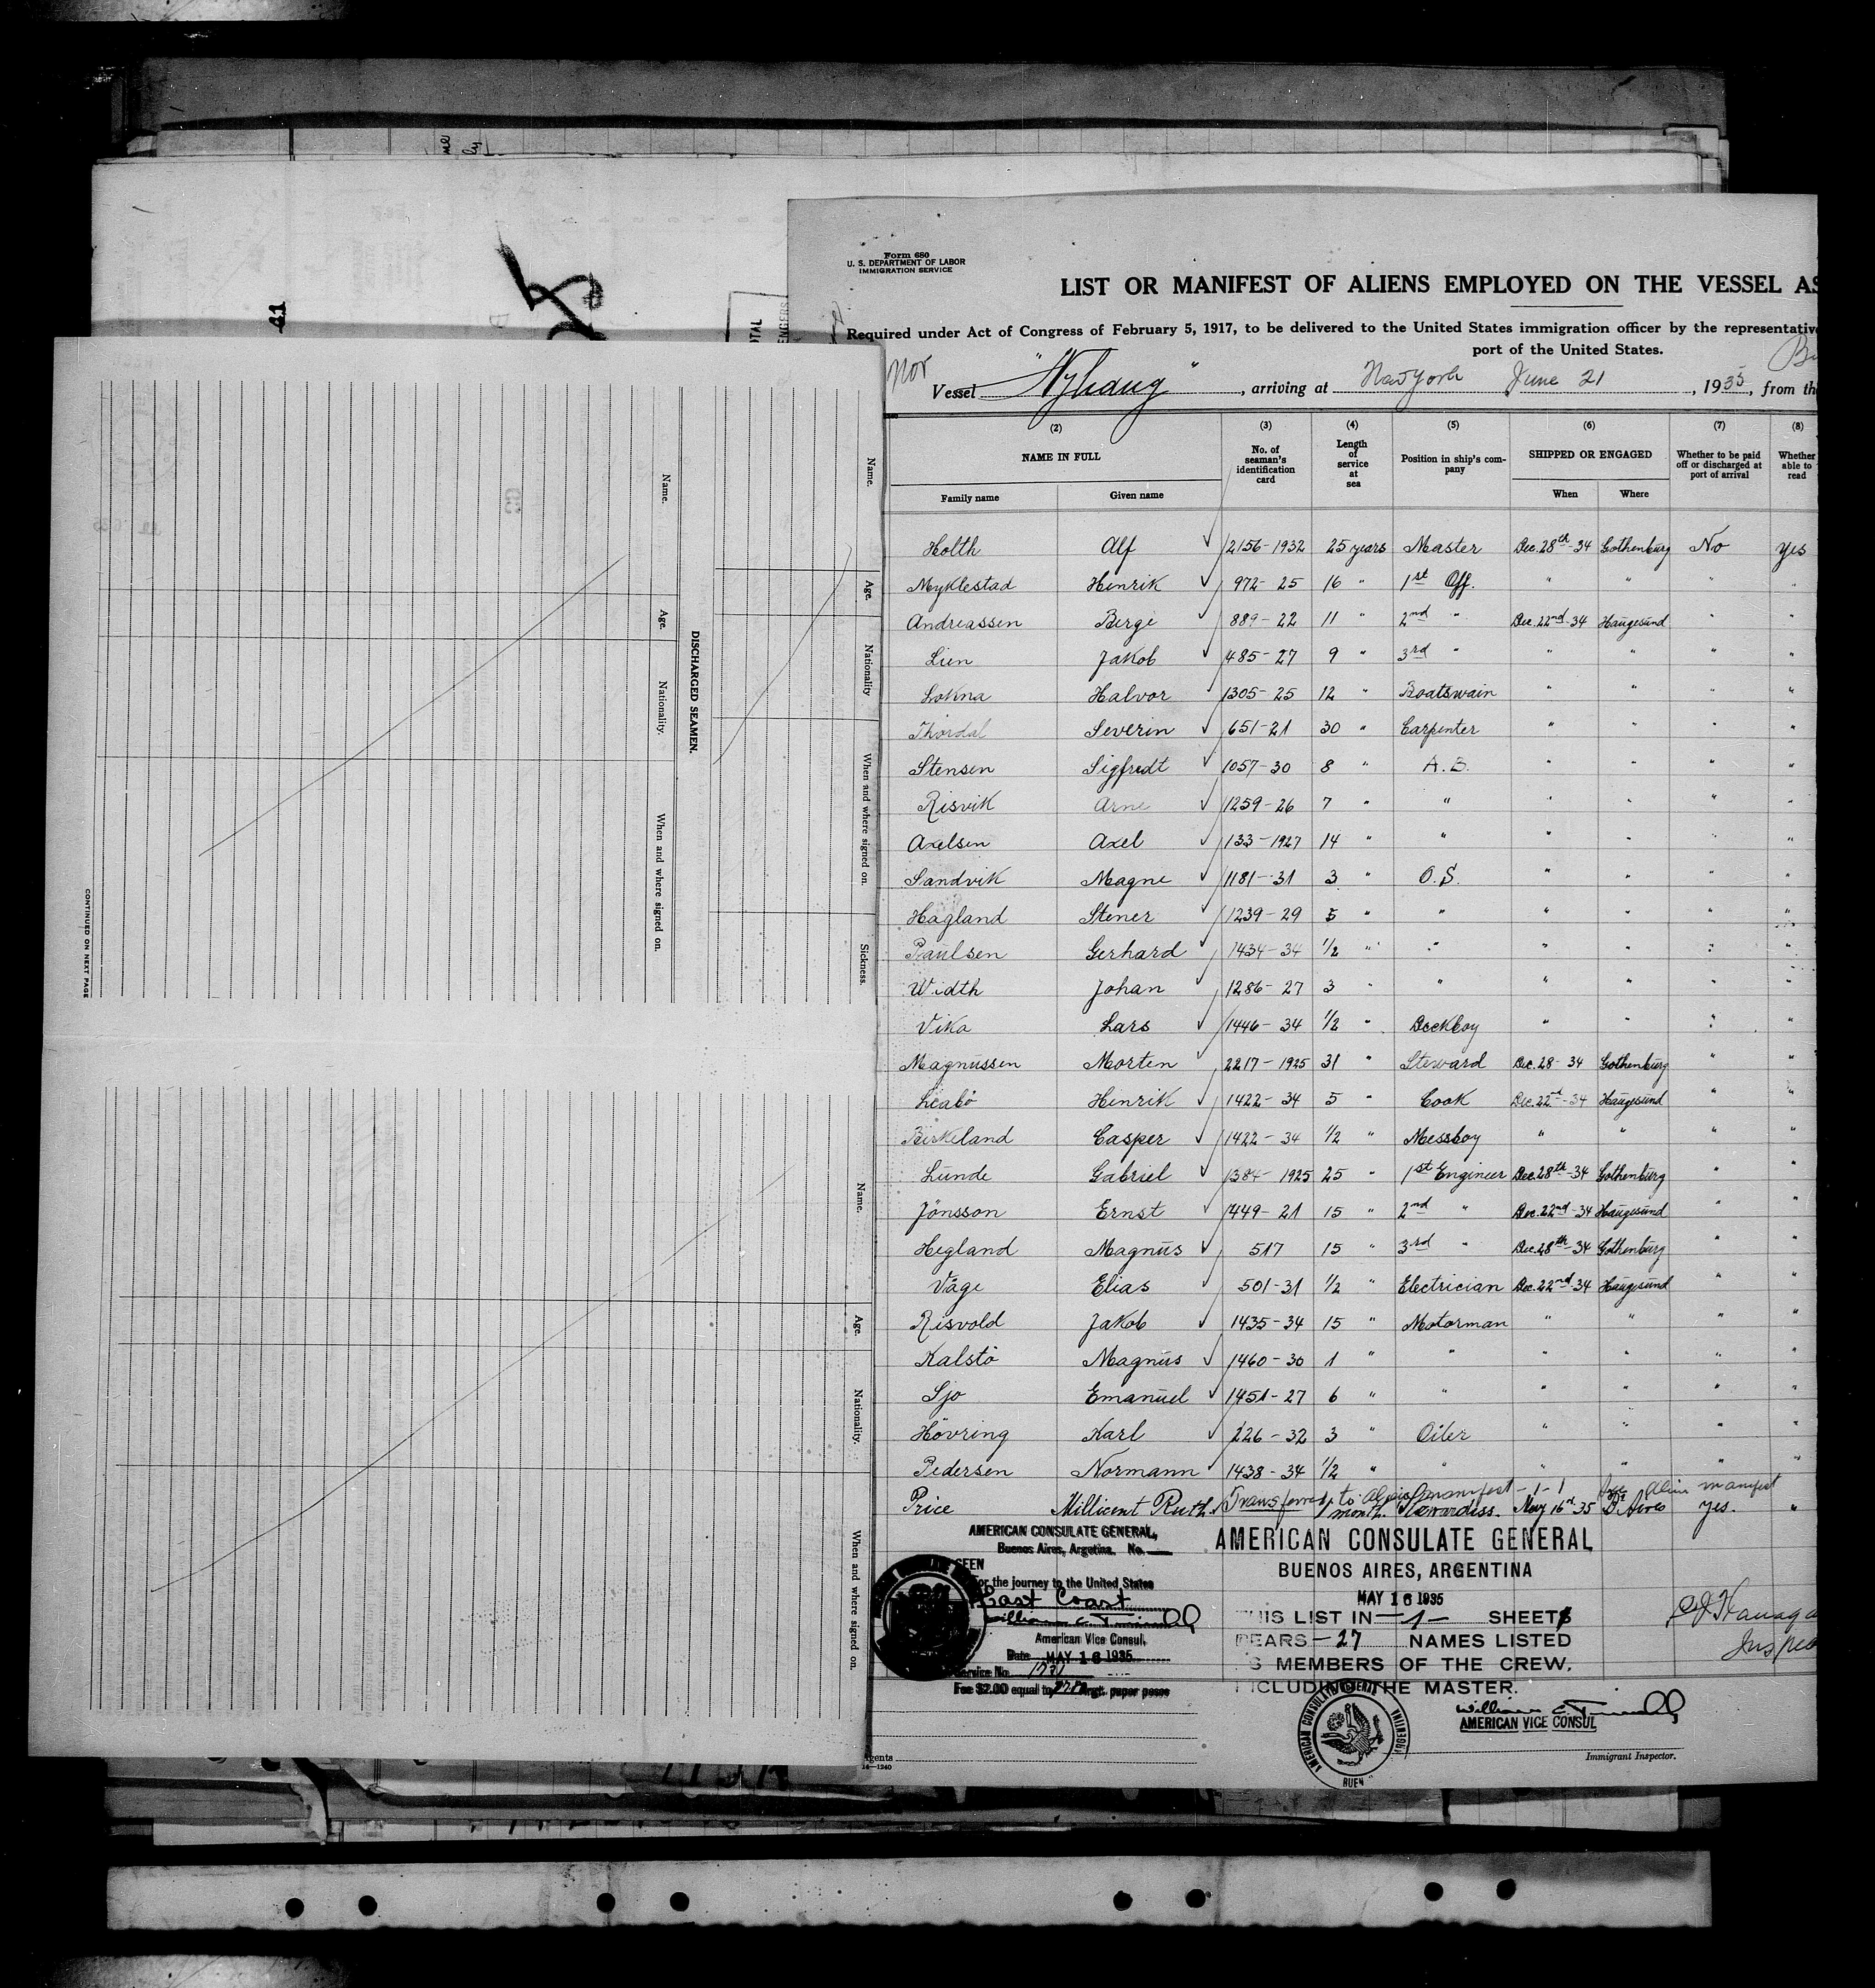 41
Form 680
U. S. DEPARTMENT OF LABOR
IMMIGRATION SERVICE
LIST OR MANIFEST OF ALIENS EMPLOYED ON THE VESSEL AS
Required under Act of Congress of February 5, 1917, to be delivered to the United States immigration officer by the representative
port of the United States.
Nor
Vessel , arriving at New York June 21 , 1935, from the
(2) (3) (4) (5) (6) (7) (8)
NAME IN FULL No. of seaman's identification card Length of service at sea Position in ship's company SHIPPED OR ENGAGED Whether to be paid off or discharged at port of arrival Whether able to read
Family name Given name When Where
Holth Alf 2156-1932 25 years Master Dec. 28th-34 Gothenburg No yes
Myklestad Henrik 972-25 16 " 1st Off. " " " "
Andreassen Berge 889-22 11 " 2nd " Dec. 22nd-34 Haugesund " "
Lien Jakob 485-27 9 " 3rd " " " " "
Lokna Halvor 1305-25 12 " Boatswain " " " "
Thordal Severin 651-21 30 " Carpenter " " "
Stensen Sigfredt 1057-30 8 " A.B. " " " "
Risvik Arne 1259-26 7 " " " " " "
Axelsen Axel 133-1927 14 " " " " " "
Sandvik Magne 1181-31 3 " O.S. " " " "
Hagland Stener 1239-29 5 " " " " " "
Paulsen Gerhard 1434-34 1/2 " " " " " "
Width Johan 1286-27 3 " " " " " "
Vika Lars 1446-34 1/2 " Deckboy " " " "
Magnussen Morten 2217-1925 31 " Steward Dec. 28-34 Gothenburg " "
Leabö Henrik 1422-34 5 " Cook Dec. 22nd-34 Haugesund " "
Birkeland Casper 1422-34 1/2 " Messboy " " " "
Lunde Gabriel 1384-1925 25 " 1st Engineer Dec. 28th-34 Gothenburg " "
Jönsson Ernst 1449-21 15 " 2nd " Dec. 22nd-34 Haugesund " "
Hegland Magnus 517 15 " 3rd " Dec. 28th-34 Gothenburg " "
Våge Elias 501-31 1/2 " Electrician Dec. 22nd-34 Haugesund " "
Risvold Jakob 1435-34 15 " Motorman " " " "
Kalstö Magnus 1460-30 1 " " " " " "
Sjo Emanuel 1451-27 6 " " " " " "
Hövring Karl 226-32 3 " Oiler " " " "
Pedersen Normann 1438-34 1/2 " " " " " "
Transferred to alien manifest - 1 - 1 alien manifest
Price Millicent Ruth 1 month. Stewardess. May 16th 35 B. Aires yes. "
AMERICAN CONSULATE GENERAL,
Buenos Aires, Argetina. No.
SEEN
For the journey to the United States
East Coast
American Vice Consul.
Date MAY 16 1935
Service No. 1731
Fee $2.00 equal to Argt. paper pesos
AMERICAN CONSULATE GENERAL
BUENOS AIRES, ARGENTINA
MAY 16 1935
THIS LIST IN -1- SHEETS
BEARS -27 NAMES LISTED
AS MEMBERS OF THE CREW,
INCLUDING THE MASTER.
AMERICAN VICE CONSUL
AMERICAN CONSULATE GENERAL
ARGENTINA
BUEN
Immigrant Inspector.
gents
14-1240
Name. Age. Nationality When and where signed on. Sickness.
DISCHARGED SEAMEN.
Name. Age. Nationality. When and where signed on.
CONTINUED ON NEXT PAGE
Name. Age. Nationality. When and where signed on.